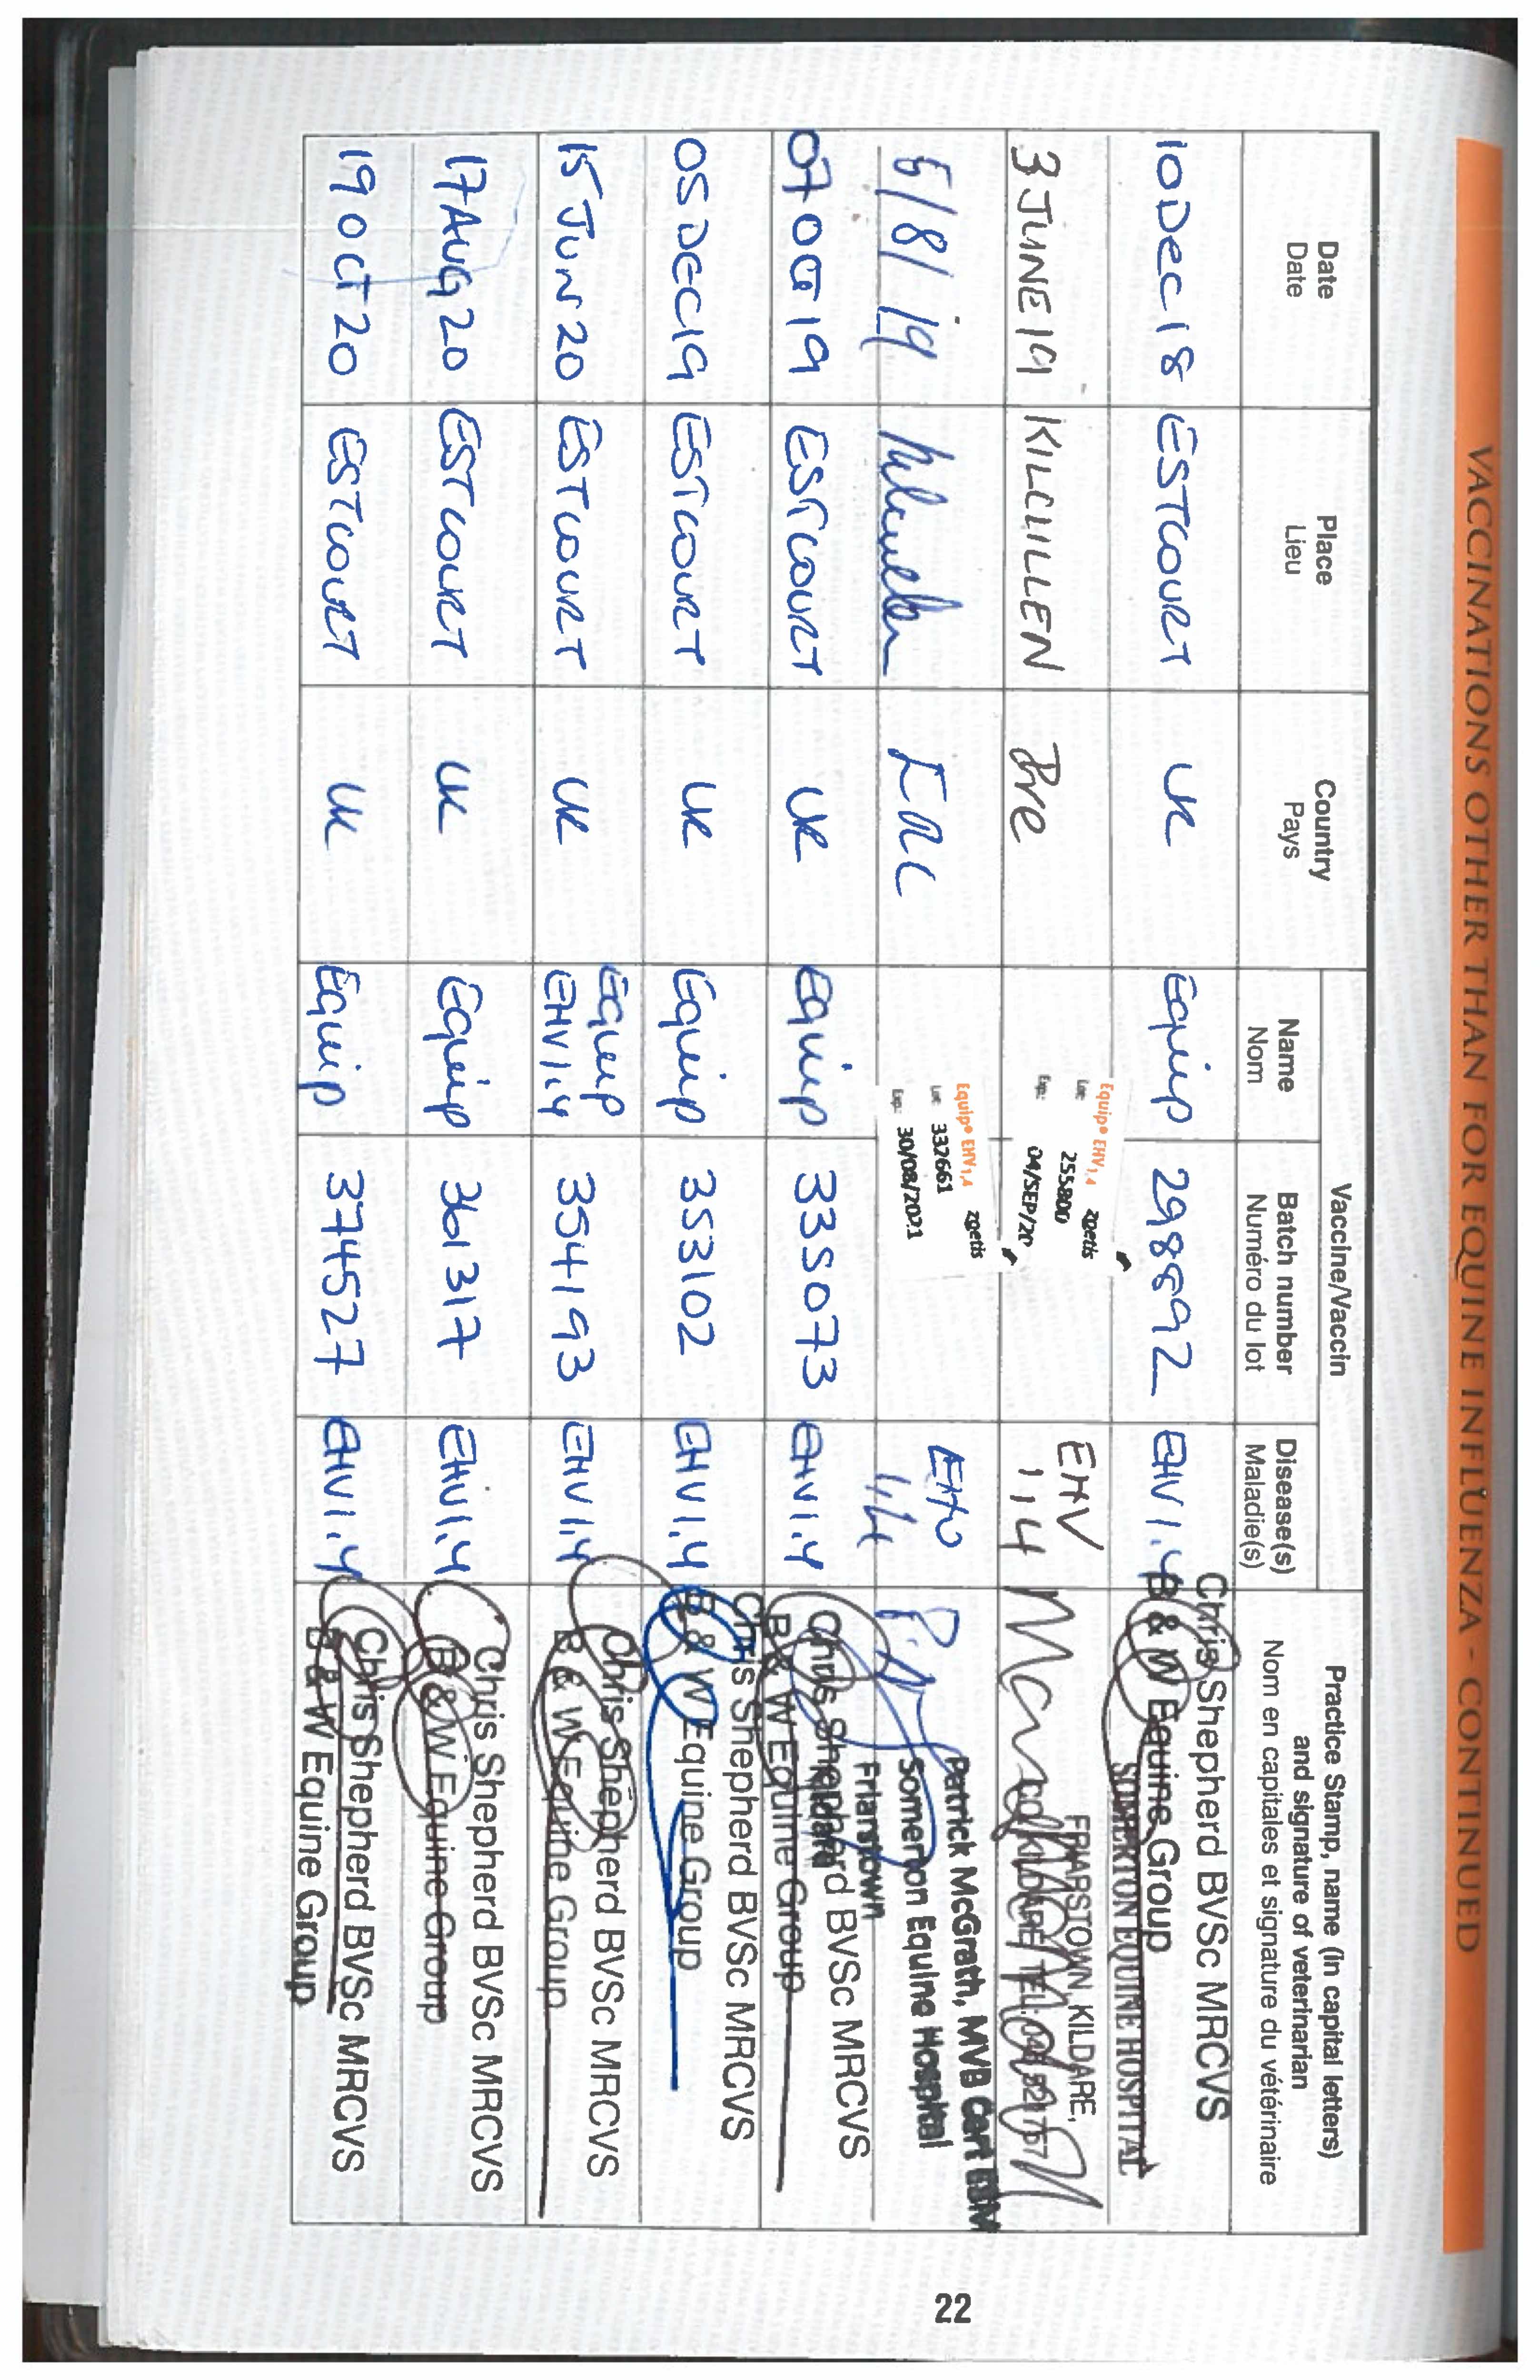 VACCINATIONS OTHER THAN FOR EQUINE INFLUENZA - CONTINUED
Date
Date
Place
Lieu
Country
Pays
Vaccine/Vaccin
Name
Nom
Batch number
Numéro du lot
Disease(s)
Maladie(s)
Practice Stamp, name (in capital letters)
and signature of veterinarian
Nom en capitales et signature du vétérinaire
10 DEC 18 ESTCOURT UK Equip 298892 EHV 1.4 Chris Shepherd BVSc MRCVS
B & W Equine Group
3 JUNE 19 KILCULLEN Equip EHV1,4 zoetis
Lot: 255800
Exp: 04/SEP/20
EHV
1,4
SOMERTON EQUINE HOSPITAL
FRIARSTOWN, KILDARE,
6/8/19 IRL Equip EHV1,4 zoetis
Lot: 332661
Exp: 30/08/2021
EHV
1,4
Patrick McGrath, MVB Cert
Somerton Equine Hospital
Friarstown
Kildare
07 OCT 19 ESTCOURT UK Equip 335073 EHV1.4 Chris Shepherd BVSc MRCVS
B & W Equine Group
05 DEC 19 ESTCOURT UK Equip 353102 EHV1.4 Chris Shepherd BVSc MRCVS
B & W Equine Group
15 JUN 20 ESTCOURT UK Equip
EHV1.4 354193 EHV1.4 Chris Shepherd BVSc MRCVS
B & W Equine Group
17 AUG 20 ESTCOURT UK Equip 361317 EHV1.4 Chris Shepherd BVSc MRCVS
B & W Equine Group
19 OCT 20 ESTCOURT UK Equip 374527 EHV1.4 Chris Shepherd BVSc MRCVS
B & W Equine Group
22